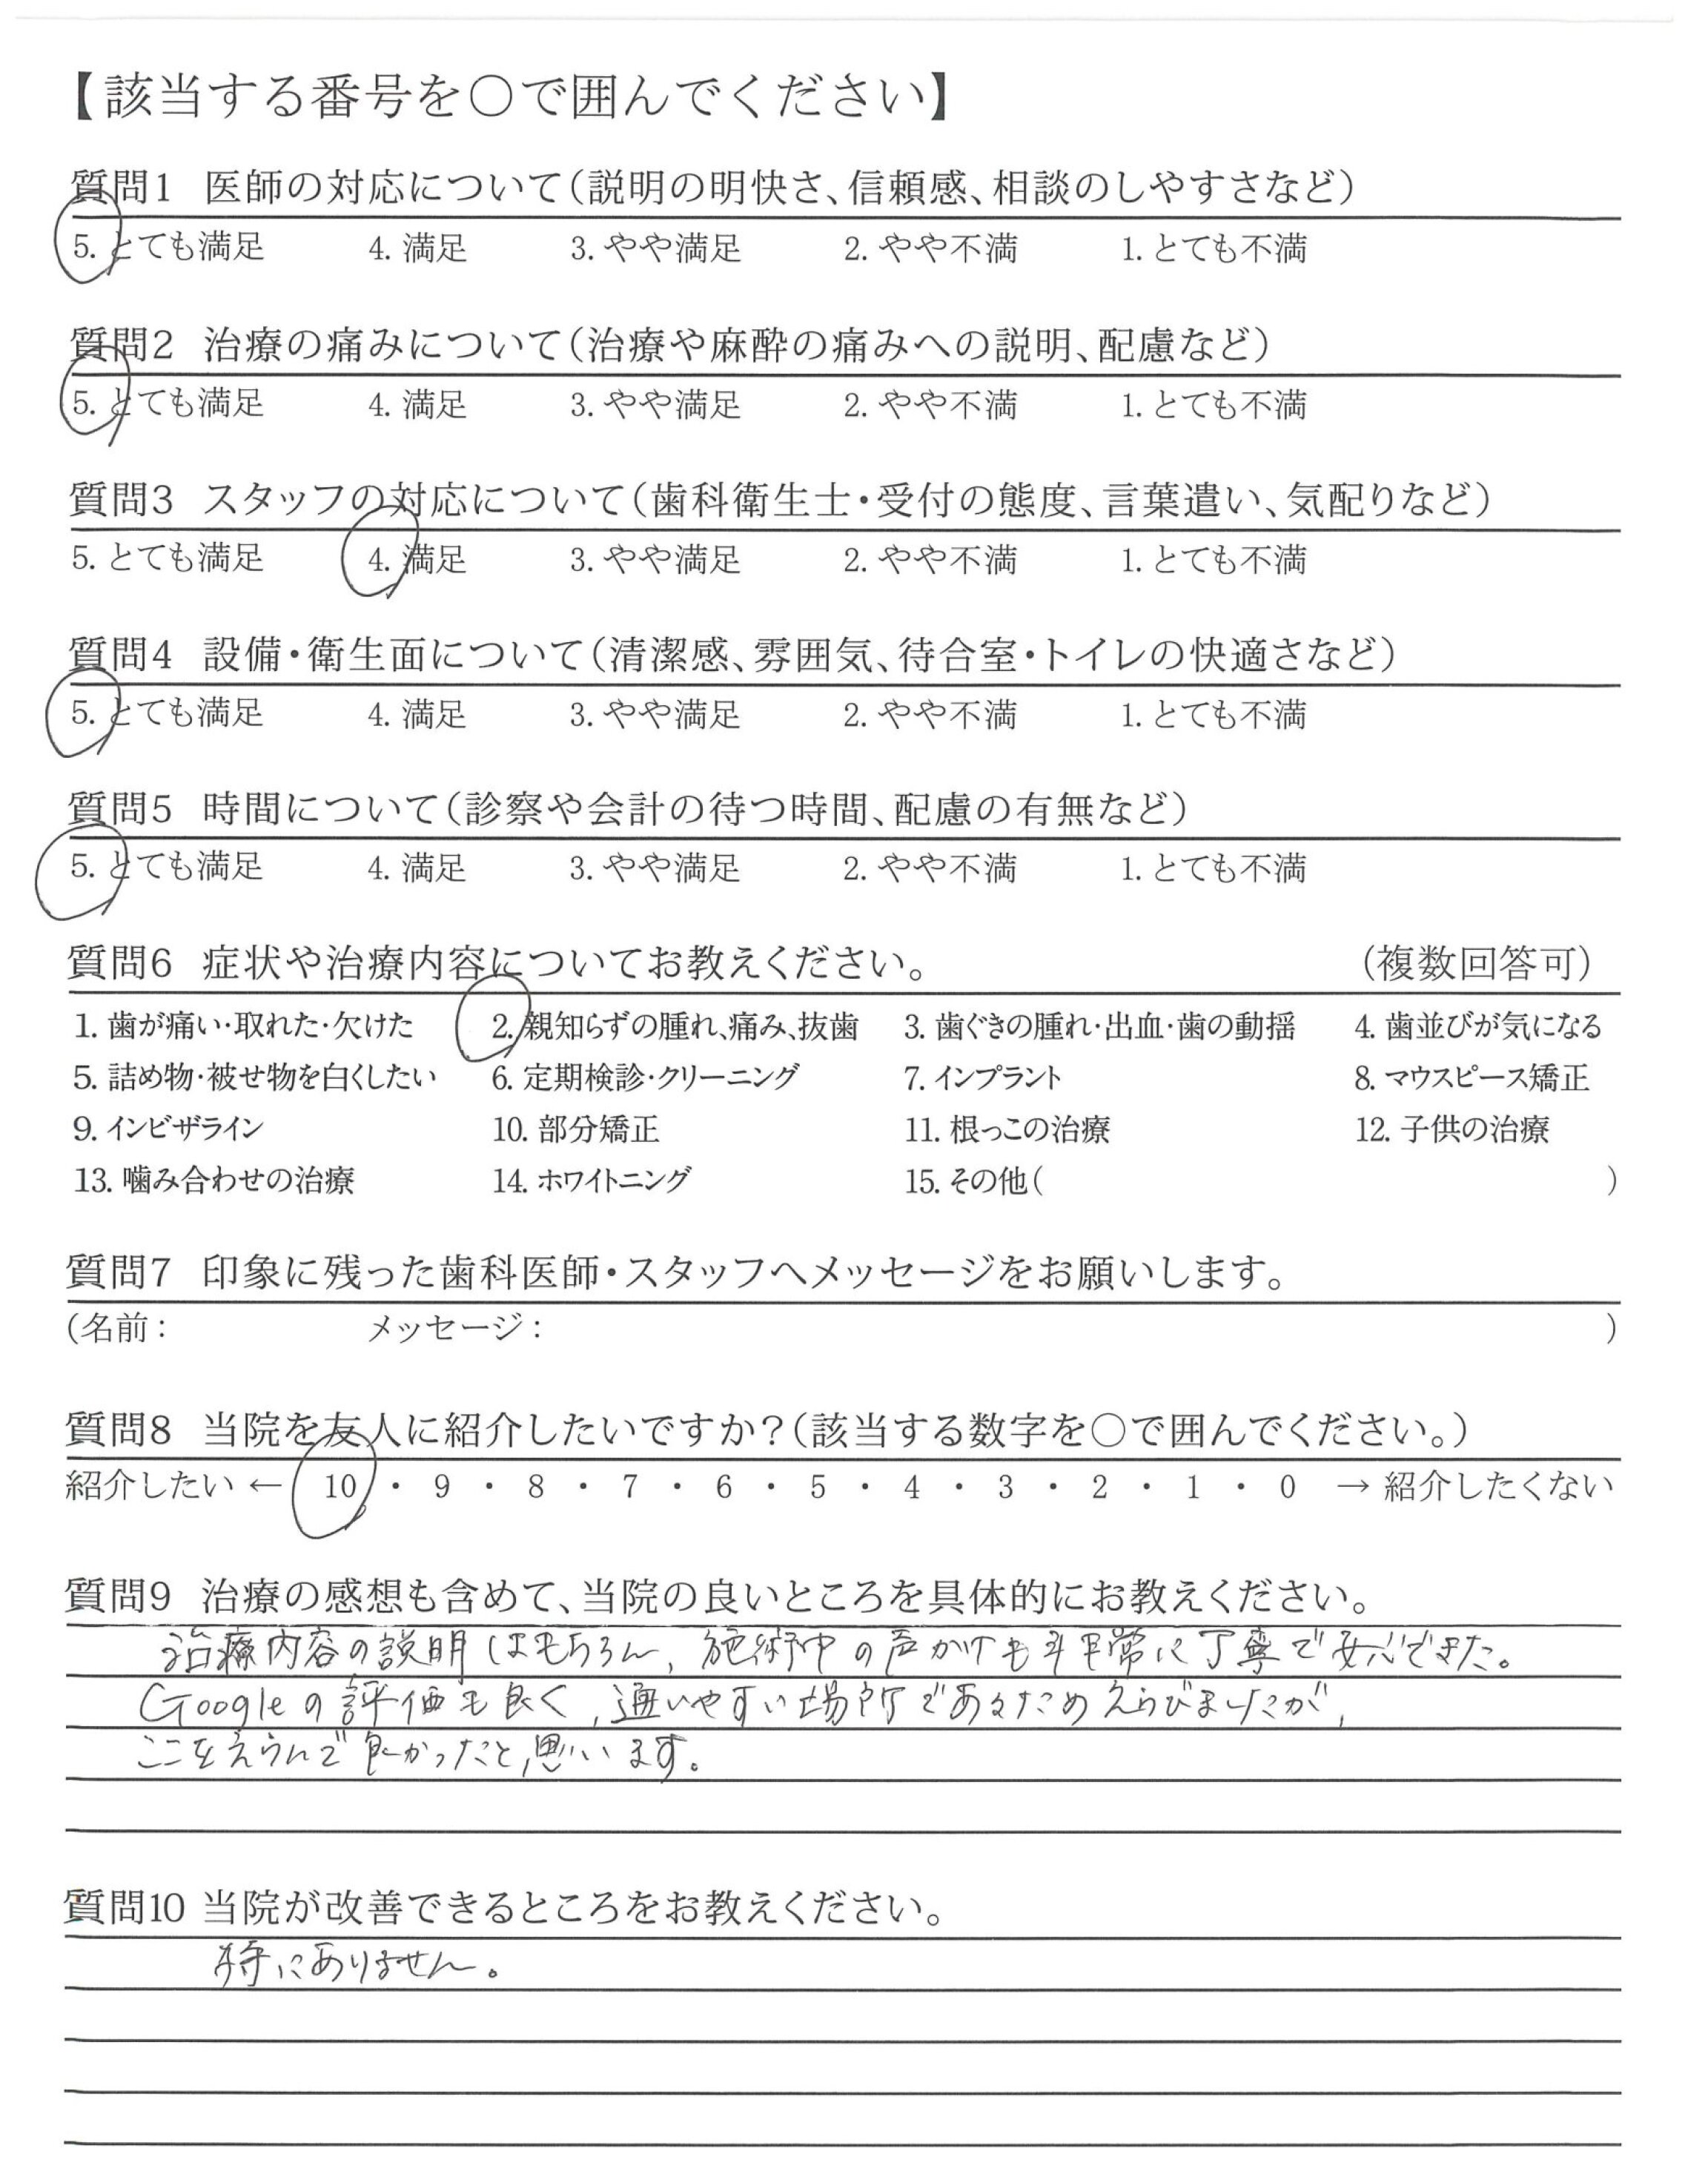 【該当する番号を〇で囲んでください】
質問1 医師の対応について(説明の明快さ、信頼感、相談のしやすさなど)
5. とても満足 4. 満足 3. やや満足 2. やや不満 1. とても不満
質問2 治療の痛みについて(治療や麻酔の痛みへの説明、配慮など)
5. とても満足 4. 満足 3. やや満足 2. やや不満 1. とても不満
質問3 スタッフの対応について(歯科衛生士・受付の態度、言葉遣い、気配りなど)
5. とても満足 4. 満足 3. やや満足 2. やや不満 1. とても不満
質問4 設備・衛生面について(清潔感、雰囲気、待合室・トイレの快適さなど)
5. とても満足 4. 満足 3. やや満足 2. やや不満 1. とても不満
質問5 時間について(診察や会計の待つ時間、配慮の有無など)
5. とても満足 4. 満足 3. やや満足 2. やや不満 1. とても不満
質問6 症状や治療内容についてお教えください。 (複数回答可)
1. 歯が痛い・取れた・欠けた 2. 親知らずの腫れ、痛み、抜歯 3. 歯ぐきの腫れ・出血・歯の動揺 4. 歯並びが気になる
5. 詰め物・被せ物を白くしたい 6. 定期検診・クリーニング 7. インプラント 8. マウスピース矯正
9. インビザライン 10. 部分矯正 11. 根っこの治療 12. 子供の治療
13. 噛み合わせの治療 14. ホワイトニング 15. その他( )
質問7 印象に残った歯科医師・スタッフへメッセージをお願いします。
(名前： メッセージ： )
質問8 当院を友人に紹介したいですか？(該当する数字を〇で囲んでください。)
紹介したい ← 10 ・ 9 ・ 8 ・ 7 ・ 6 ・ 5 ・ 4 ・ 3 ・ 2 ・ 1 ・ 0 → 紹介したくない
質問9 治療の感想も含めて、当院の良いところを具体的にお教えください。
治療内容の説明はもちろん、施術中の声かけも非常に丁寧で安心できた。
Googleの評価も良く、通いやすい場所であるためえらびましたが、
ここをえらんで良かったと思います。
質問10 当院が改善できるところをお教えください。
特にありません。